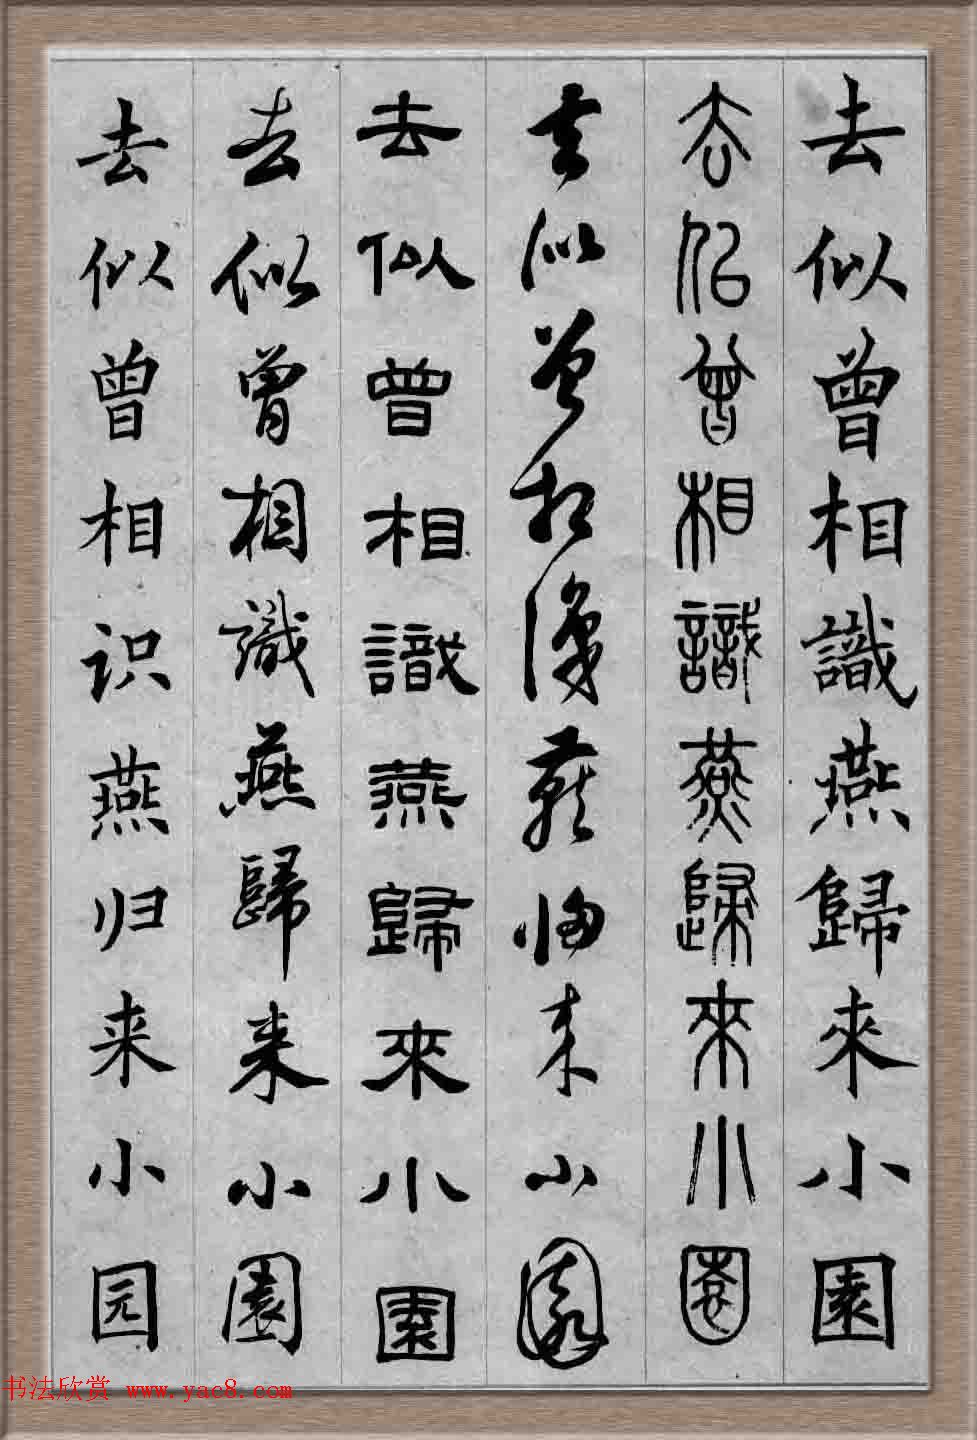 去似曾相識燕歸來小園
去似曾相識燕歸來小園
去似曾相識燕歸来小園
去似曾相識燕歸來小園
去似曾相識燕歸来小園
去似曾相识燕归来小园
书法欣赏 www.yac8.com